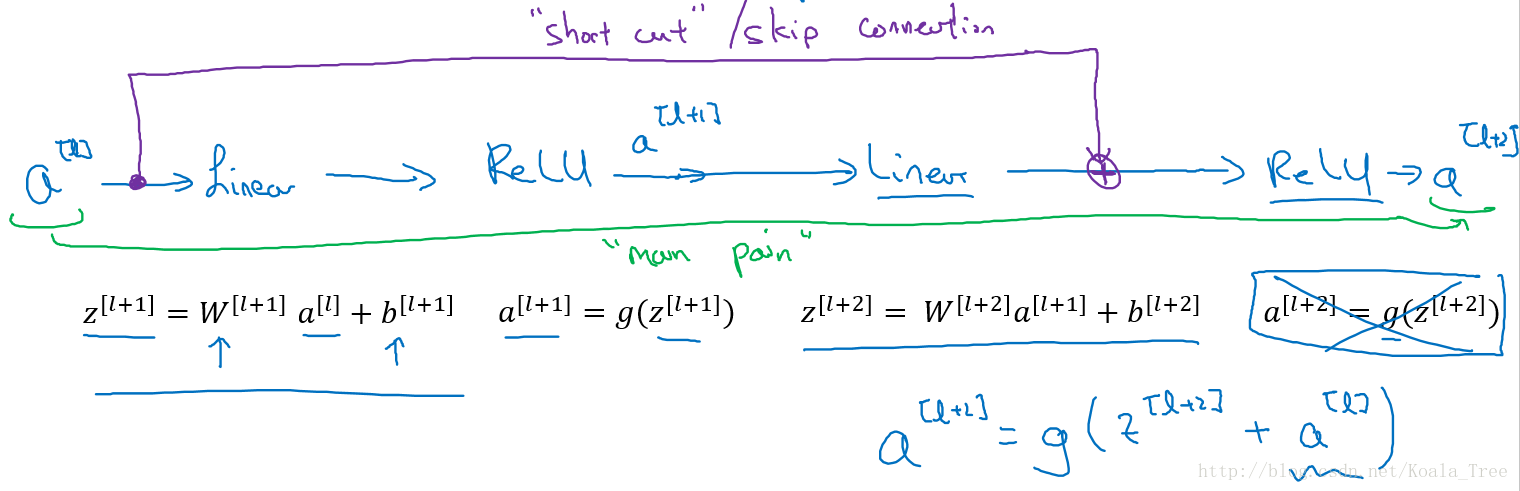 "short cut" / skip connection
a^[l] → Linear → ReLU a^[l+1] → Linear → ReLU → a^[l+2]
"main pain"
z^[l+1] = W^[l+1] a^[l] + b^[l+1] a^[l+1] = g(z^[l+1]) z^[l+2] = W^[l+2] a^[l+1] + b^[l+2] a^[l+2] = g(z^[l+2])
a^[l+2] = g(z^[l+2] + a^[l])
http://blog.csdn.net/Koala_Tree